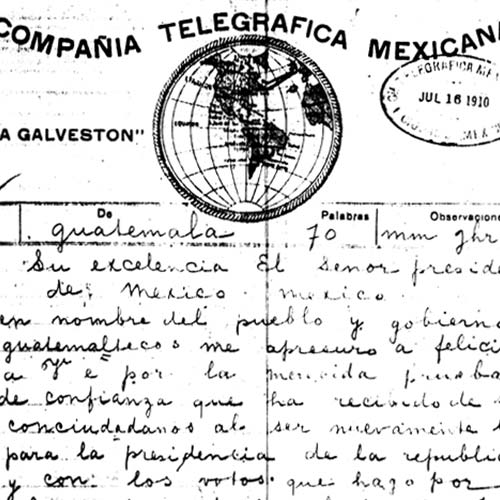 COMPAÑIA TELEGRAFICA MEXICANA
JUL 16 1910
A GALVESTON"
De Palabras Observacione
guatemala 70 mm
Su excelencia El Señor preside
de, Mexico. mexico.
en nombre del pueblo y gobierno
guatemaltecos me apresuro a felici
a por la merecida prueba
de confianza que ha recibido de
conciudadanos al ser nuevamente
para la presidencia de la republic
y con los votos que hago por